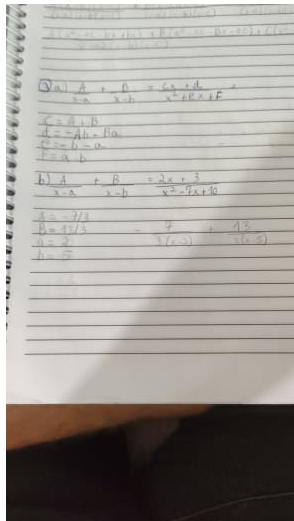 ③ a) A/(x-a) + B/(x-b) = (Cx + d)/(x² + ex + F)
C = A + B
d = -Ab - Ba
e = -b - a
F = a b
b) A/(x-a) + B/(x-b) = (2x + 3)/(x² - 7x + 10)
A = -7/3
B = 13/3 - 7/(3(x-2)) + 13/(3(x-5))
a = 2
b = 5